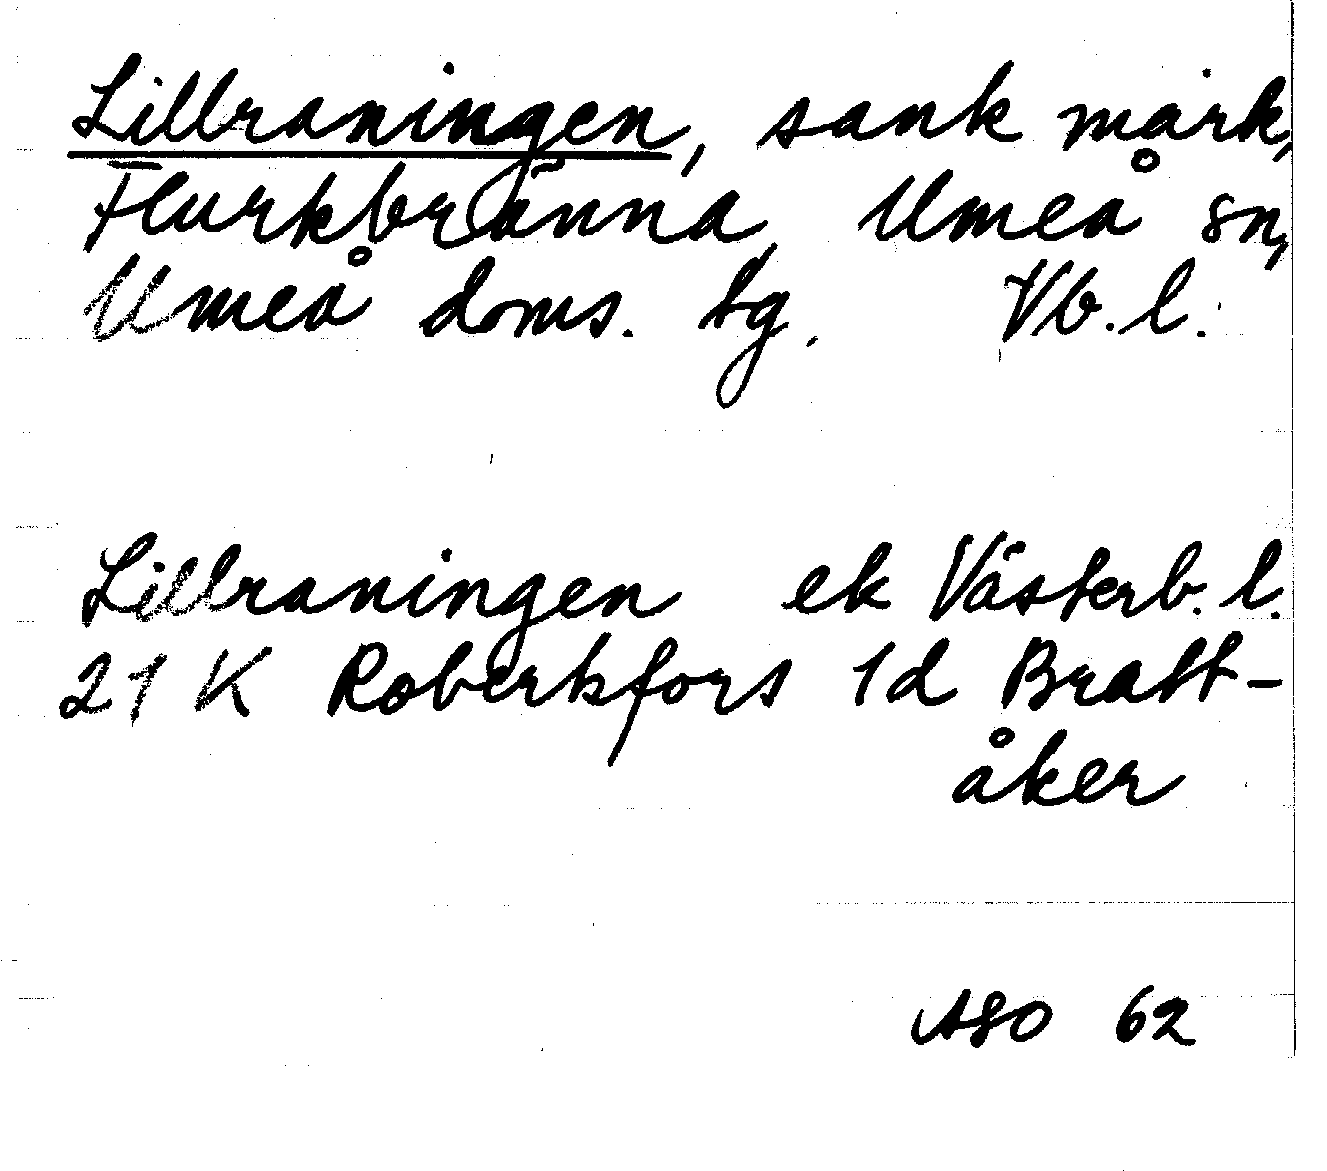 Lillraningen, sank mark,
Flurkbränna, Umeå sn,
Umeå doms. tg. Vb. l.
Lillraningen ek Västerb. l.
21 K Robertsfors 1d Bratt-
åker
ASO 62